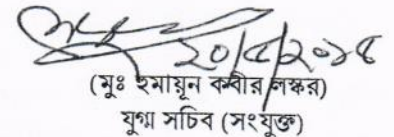 ২০/৫/২০১৪
(মুঃ হুমায়ুন কবীর লস্কর)
যুগ্ম সচিব (সংযুক্ত)